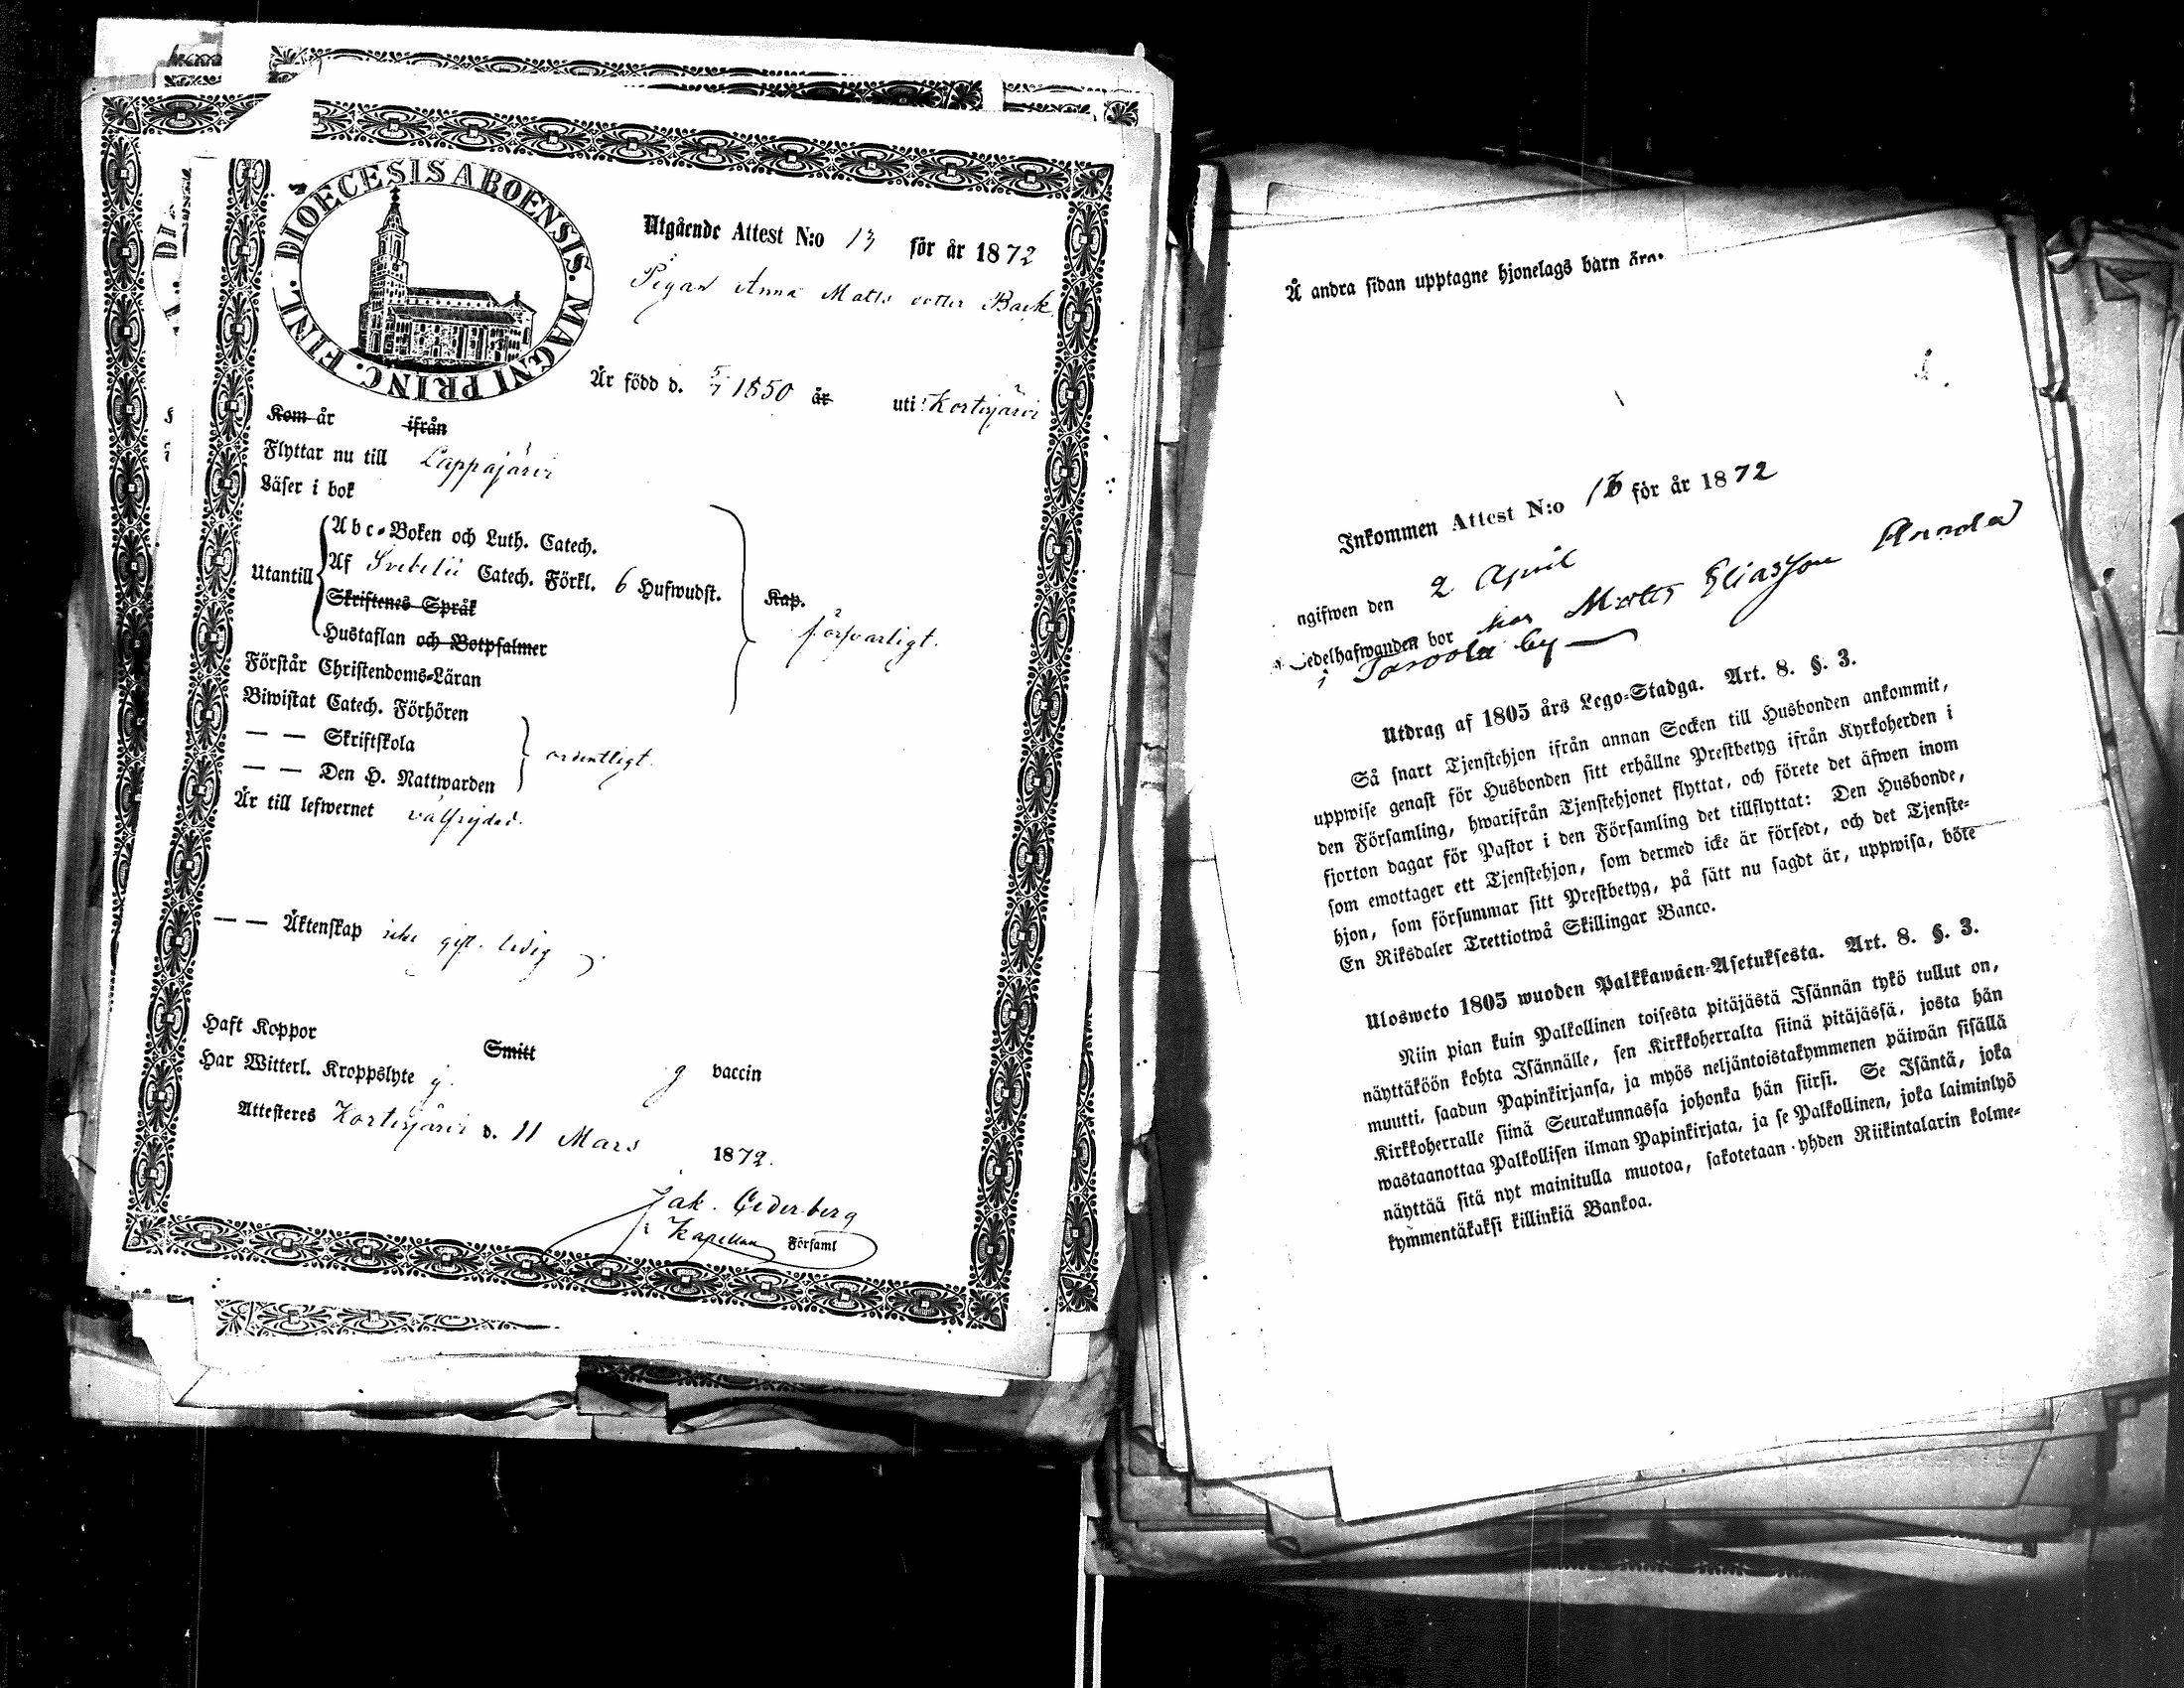 DIOECESIS ABOENSIS. MAGNI PRINC. FINL.
Utgående Attest N:o 13 för år 1872
Pigan Anna Matts dotter Back
Är född d. 5/7 1850 år uti Kortesjärvi
Kom år ifrån
Flyttar nu till Lappajärvi
Läser i bok
Utantill
Abc-Boken och Luth. Catech.
Af Svebelii Catech. Förkl. 6 Hufwudst.
Skriftenes Språk
Hustaflan och Botpsalmer
Kap.
försvarligt.
Förstår Christendoms-Läran
Biwistat Catech. Förhören
— — Skriftskola
— — Den H. Nattwarden
ordentligt.
Är till lefwernet välfrejdad.
— — Äktenskap icke gift. ledig
Haft Koppor Smitt g vaccin
Har Witterl. Kroppslyte ej.
Attesteres Kortesjärvi d. 11 Mars 1872.
Jak. Cederberg
Kapellan Församl
Å andra sidan upptagne hjonelags barn äro:
Inkommen Attest N:o 13 för år 1872
ngifwen den 2 April
edelhafwanden bor hos Matts Eliasson
i by
Utdrag af 1805 års Lego-Stadga. Art. 8. §. 3.
Så snart Tjenstehjon ifrån annan Socken till Husbonden ankommit,
uppwise genast för Husbonden sitt erhållne Prestbetyg ifrån Kyrkoherden i
den Församling, hwarifrån Tjenstehjonet flyttat, och förete det äfwen inom
fjorton dagar för Pastor i den Församling det tillflyttat: Den Husbonde,
som emottager ett Tjenstehjon, som dermed icke är försedt, och det Tjenste-
hjon, som försummar sitt Prestbetyg, på sätt nu sagdt är, uppwisa, böte
En Riksdaler Trettiotwå Skillingar Banco.
Ulosweto 1805 wuoden Palkkawäen-Asetuksesta. Art. 8. §. 3.
Niin pian kuin Palkollinen toisesta pitäjästä Isännän tykö tullut on,
näyttäköön kohta Isännälle, sen Kirkkoherralta siinä pitäjässä, josta hän
muutti, saadun Papinkirjansa, ja myös neljäntoistakymmenen päiwän sisällä
Kirkkoherralle siinä Seurakunnassa johonka hän siirsi. Se Isäntä, joka
wastaanottaa Palkollisen ilman Papinkirjata, ja se Palkollinen, joka laiminlyö
näyttää sitä nyt mainitulla muotoa, sakotetaan yhden Riikintalarin kolme-
kymmentäkaksi killinkiä Bankoa.